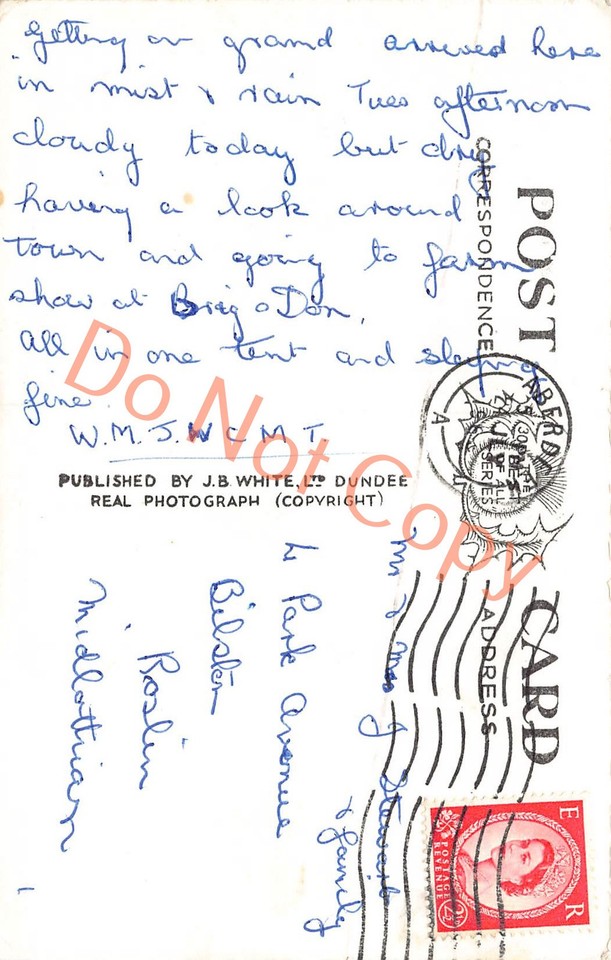 Getting on grand arrived here
in mist & rain Tues afternoon
cloudy today but dry
having a look around
town and going to farm
show at Brig o Don,
All in one tent and sleeping
fine.
W.M.J.W C M T.
PUBLISHED BY J.B. WHITE, LTD DUNDEE
REAL PHOTOGRAPH (COPYRIGHT)
POST CARD
CORRESPONDENCE
ADDRESS
Mr & Mrs J Stewart
& family
4 Park Avenue
Bilston
Roslin
Midlothian
ABERD
A
E R
POSTAGE
REVENUE
2½
Do Not Copy